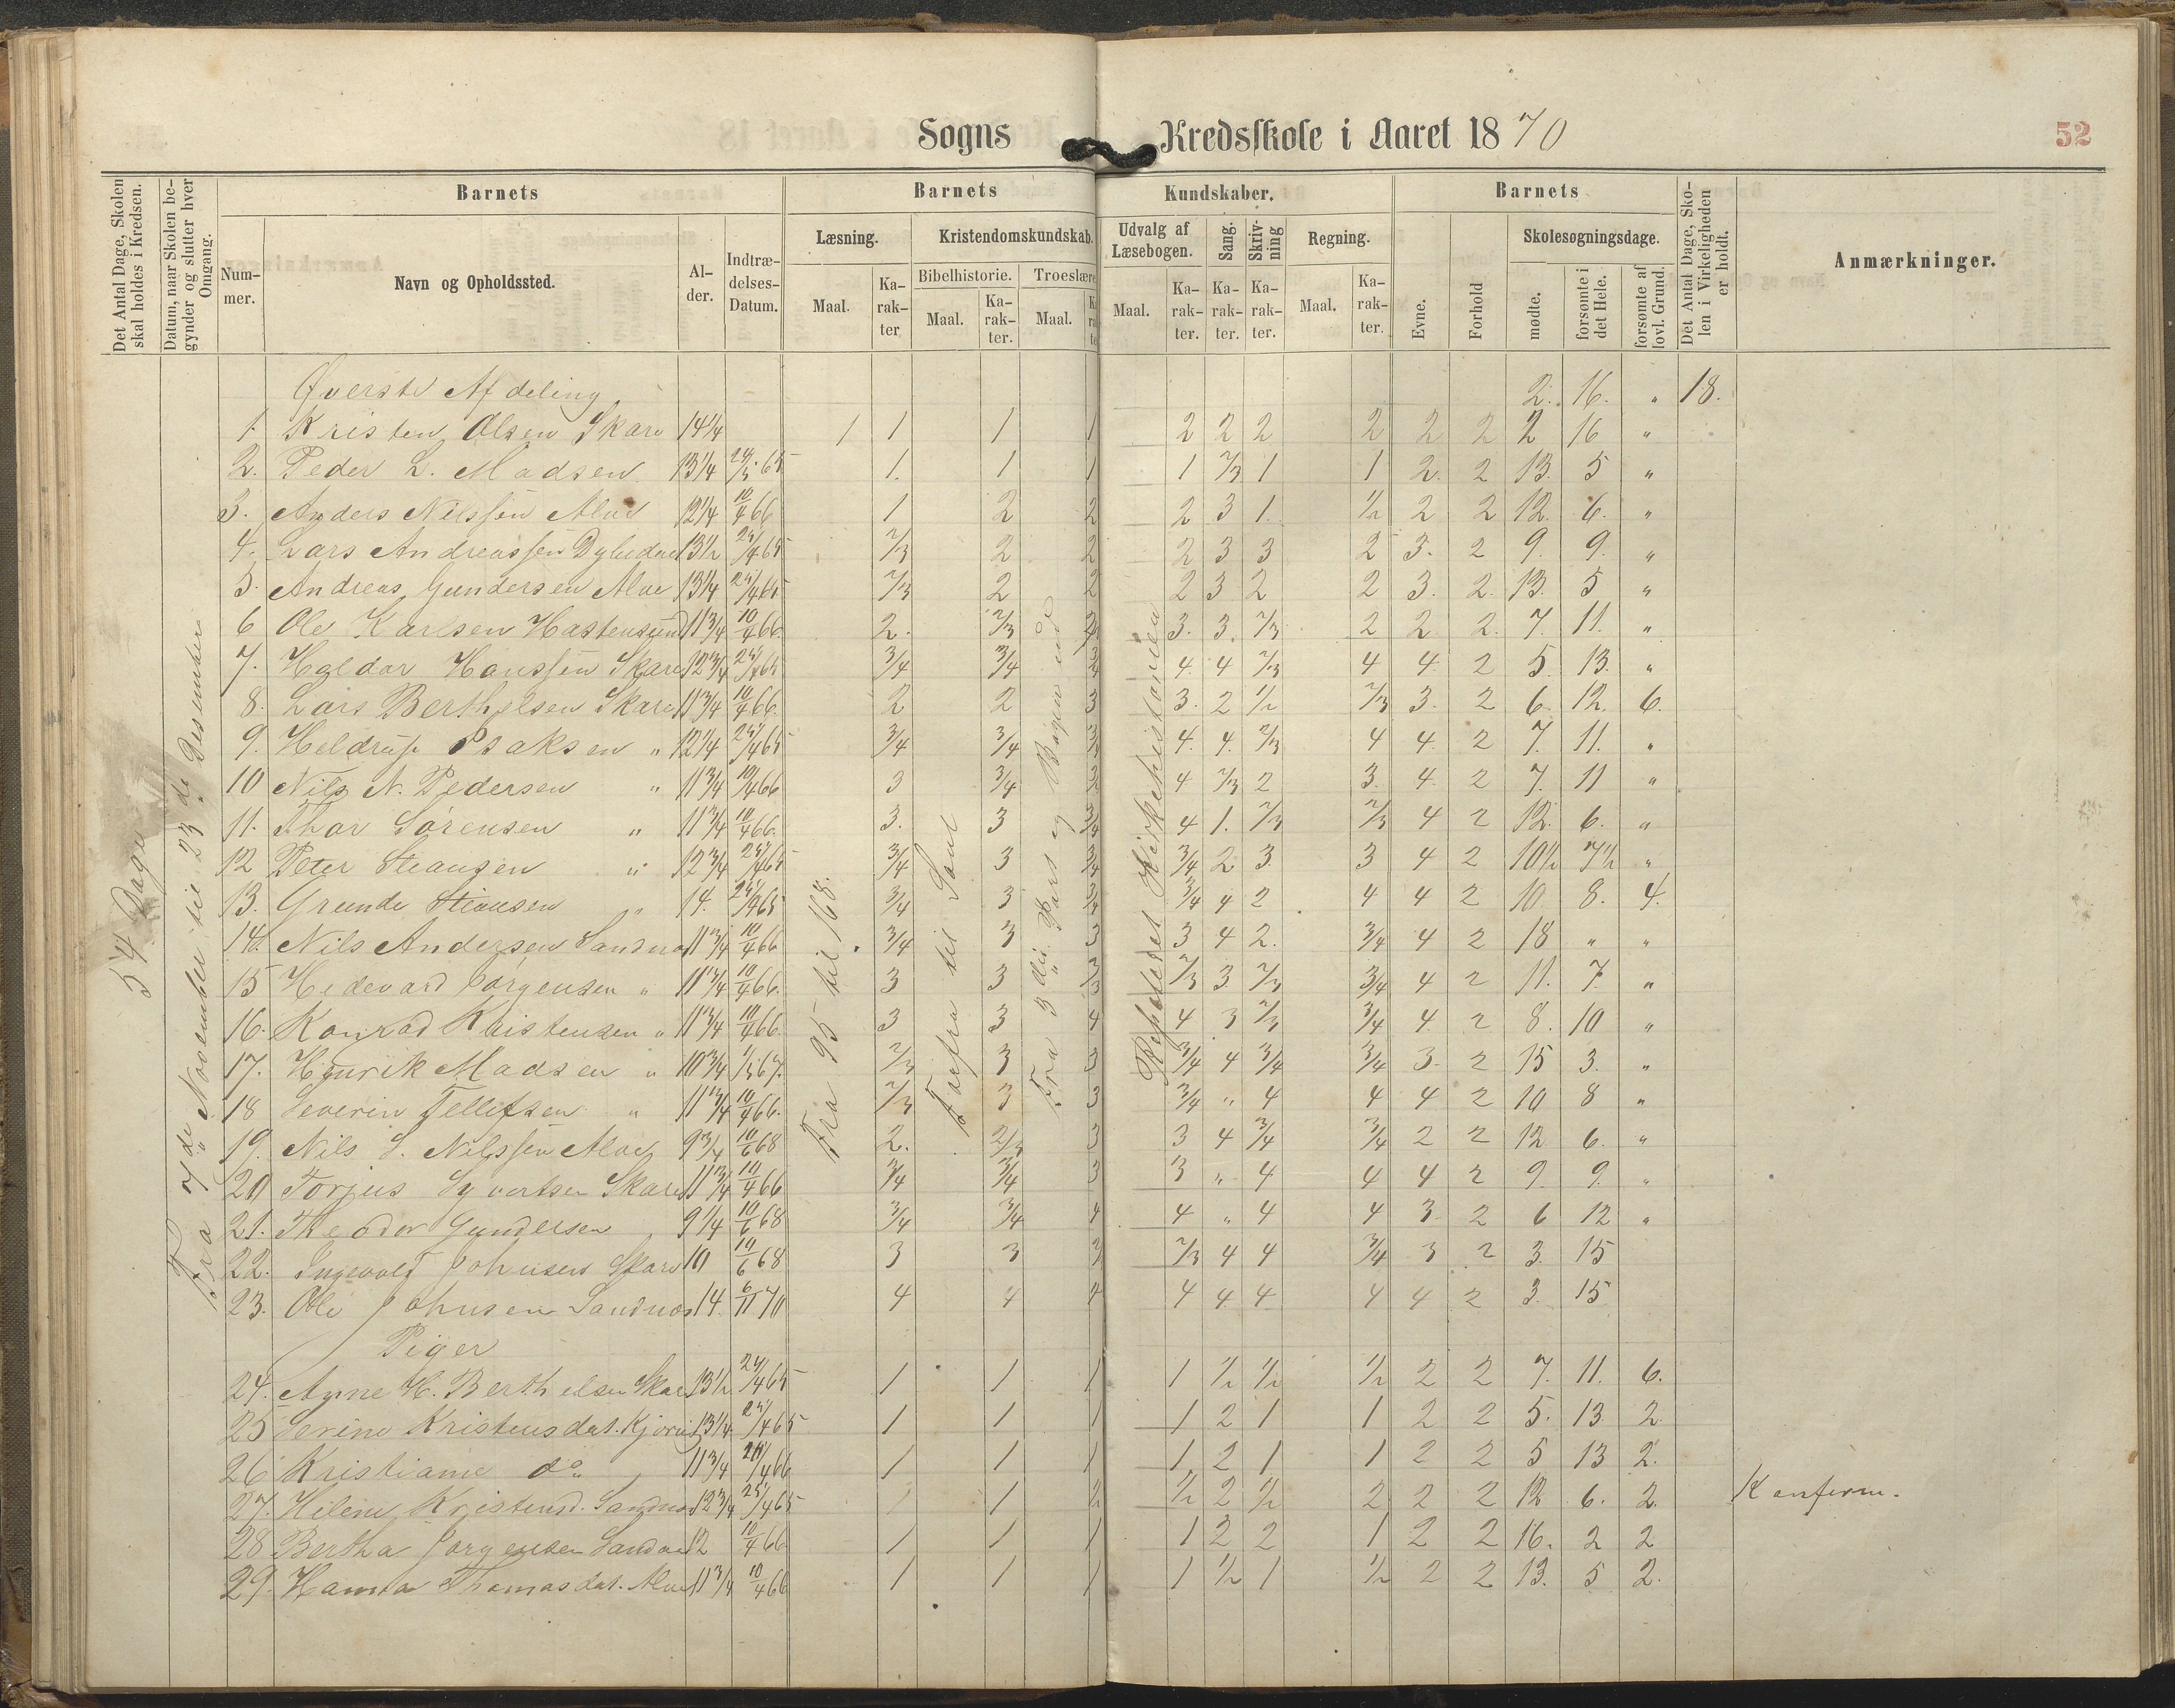 Sogns Kredsskole i Aaret 1870
52
Det Antal Dage, Skolen skal holdes i Kredsen.
Datum, naar Skolen begynder og slutter hver Omgang.
Barnets
Nummer.
Navn og Opholdssted.
Alder.
Indtrædelses-Datum.
Barnets Kundskaber.
Læsning.
Maal.
Karakter
Kristendomskundskab.
Bibelhistorie.
Maal.
Karakter.
Troeslære
Maal.
Udvalg af Læsebogen.
Maal.
Karakter.
Sang.
Karakter.
Skrivning
Karakter.
Regning.
Maal.
Karakter.
Barnets
Evne.
Forhold
Skolesøgningsdage.
mødte.
forsømte i det Hele.
forsømte af lovl. Grund.
Det Antal Dage, Skolen i Virkeligheden er holdt.
Anmærkninger.
54 Dage
Fra 7de November til 23de Desember
Fra 95 til 168.
Forfra til Saul
Repeteret Kirkehistorien
Øverste Afdeling 2. 16. " 18.
1. Kristen Olsen Skare 14¼ 1 1 1 1 2 2 2 2 2 2 2 16 "
2. Peder L. Madsen 13¼ 24/5 65 1. 1 1 1 2/3 1 1 2. 2 13. 5 "
3. Anders Nilssen Alve 12¼ 10/4 66 1 2 2 2 3 1. ½ 2 2 12. 6. "
4. Lars Andreassen 13½ 25/4 65 2/3 2 2 2 3 3 2 3. 2 9. 9. "
5. Andreas Gundersen Alve 13¼ 25/4 65 2/3 2 2 2 3 2 2 3. 2. 13. 5 "
6 Ole Karlsen Hastensund 11¾ 10/4 66. 2. 2/3 3. 3. 2/3 2 2 2. 7. 11. "
7. Haldor Hanssen Skare 12¾ 25/4 65 3/4 3/4 3/4 4. 4 2/3 4 4. 2 5. 13. "
8. Lars Berthelsen Skare 11¾ 10/4 66. 2 2 3 3. 2 ½ 2/3 3. 2 6. 12. 6.
9. Heldrup Isaksen " 12¼ 25/4 65 3/4 3/4 4. 4. 2/3 4 4. 2 7. 11. "
10 Nils N. Pedersen " 11¾ 10/4 66 3 3/4 4 2/3 2 3. 4. 2 7. 11 "
11. Thor Sørensen " 11¾ 10/4 66. 3. 3 3/4 4 1. 2/3 2/3 4 2 12. 6. "
12 Peter Steansen " 12¾ 25/4 65 3/4 3 3/4 3/4 2. 3. 3 4 2 10½ 7½ "
13. Grunde Stiansen " 14. 25/4 65 3/4 3 3/4 3/4 4 2 4 4 2 10 8. 4.
14. Nils Andersen Sandnæs 11¾ 10/4 66 3/4 3 3 3 4 2. 3/4 4 2 18 " "
15 Hedevard Jørgensen " 11¾ 10/4 66. 3 3 2/3 2/3 3 2/3 3/4 4 2 11. 7. "
16. Konrad Kristensen " 11¾ 10/4 66. 3 3 4 4 3 2/3 3/4 4 2 8. 10 "
17. Henrik Madsen " 10¾ 67. 2/3 3 3 3/4 4 3/4 3/4 3. 2 15 3. "
18 Severin Tellefsen " 11¾ 10/4 66. 2/3 3 3 3/4 " 4 4 4 2 10 8 "
19. Nils S. Nilssen Alve 9¾ 10/6 68 2. 2/3 3 3 4 3/4 3/4 2 2 12 6. "
20 Torjus Syvertsen Skare 11¾ 10/4 66 3/4 3/4 3 3 " 4 4 4 2 9. 9. "
21. Theodor Gundersen 9¼ 10/6 68 3/4 3/4 4 4 " 4 4 3. 2 6 12 "
22. Ingevald Johnsen Skare 10 10/6 68 3 3 2/3 4 4 3/4 3 2 3. 15
23. Ole Johnsen Sandnæs 14. 6/11 70 4 4 4 4 4 4 4 4 2 3. 15
Piger
24. Anne H. Berthelsen Skare 13½ 24/4 65 1 1 1 1 ½ ½ ½ 2 2 7. 11. 6.
25 Serine Kristensdat. 13¼ 25/4 65 1 1 1 1 2 1 1 2 2 5. 13. 2
26 Kristiane do 11¾ 66 1 1 1 1 2 1 1 2 2 5 13 2.
27. Helene Kristensd. Sandnæs 12¾ 25/4 65 1 1 2 ½ 2 ½ 2 2 2 12 6. 2. Konferm.
28 Bertha Jørgensen Sandnæs 12 10/4 66 1 1 1 1 2 2 1 2 2 16. 2 2
29. Hanna Thomasdat. Alve 11¾ 10/4 66 1 1 1 1 ½ 1 ½ 2 2 13. 5 2.